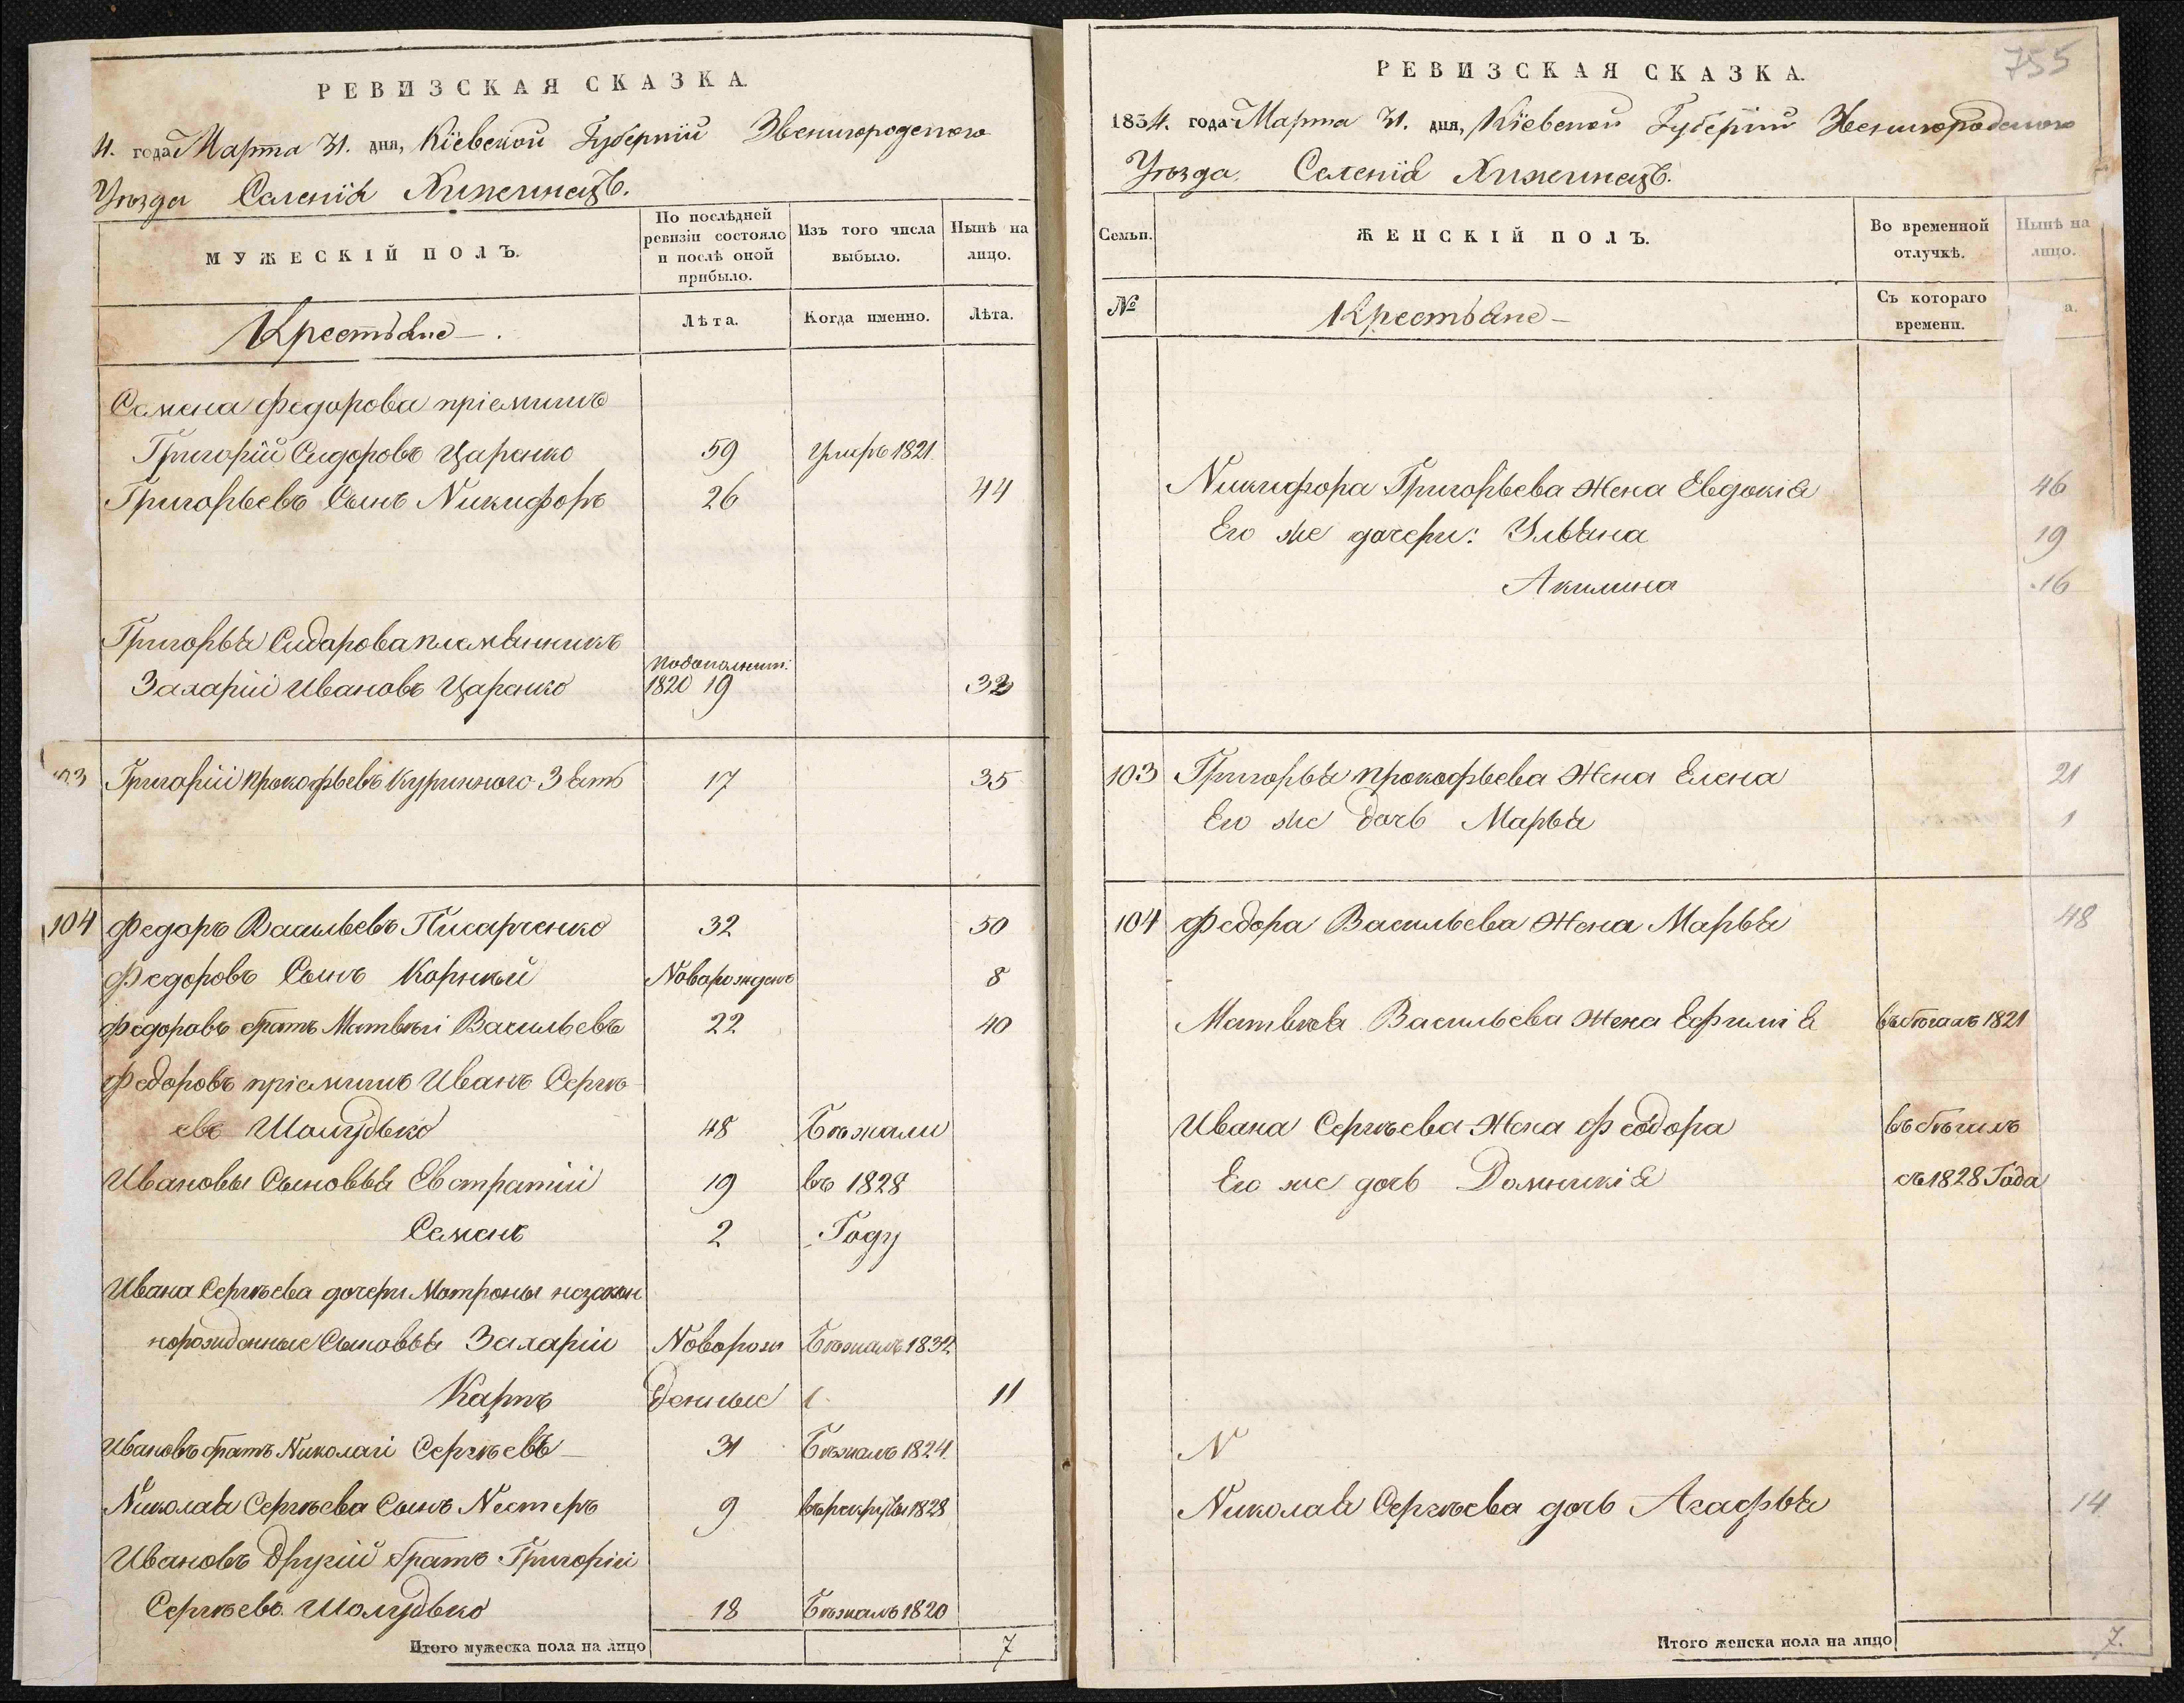 РЕВИЗСКАЯ СКАЗКА.
4. года Марта 31. дня, Кіевской Губерніи Звенигородского
Уѣзда Селенія Хижинецъ.
МУЖЕСКІЙ ПОЛЪ.
По послѣдней ревизіи состояло и послѣ оной прибыло.
Изъ того числа выбыло.
Нынѣ на лицо.
Крестьяне
Лѣта.
Когда именно.
Лѣта.
Семена Федорова пріемишъ
Григорій Сидоровъ Царенко 59 Умеръ 1821
Григорьевъ Сынъ Никифоръ 26 44
Григорья Сидарова племянникъ
Захарій Ивановъ Царенко 1820 19 32
Григорій Прокофьевъ Куринного Зять 17 35
104 Федоръ Васильевъ Писарченко 32 50
Федоровъ Сынъ Корнѣй Новорожденъ 8
Федоровъ братъ Матвѣй Васильевъ 22 40
Федоровъ пріемишъ Иванъ Сергѣ-
евъ Шолудько 48 Бѣжали
Ивановы Сыновья Евстратій 19 въ 1828
Семенъ 2 Году
Ивана Сергѣева дочери Матроны незакон
норожденные Сыновья Захарій Новорож Бѣжалъ 1832
Карпъ денные 11
Ивановъ братъ Николай Сергѣевъ 31 Бѣжалъ 1824
Николая Сергѣева Сынъ Нестеръ 9 въ рекруты 1828
Ивановъ Другій братъ Григорій
Сергѣевъ Шолудько 18 Бѣжалъ 1820
Итого мужеска пола на лицо 7
755
РЕВИЗСКАЯ СКАЗКА.
1834. года Марта 31. дня, Кіевской Губерніи Звенигородского
Уѣзда Селенія Хижинецъ.
Семьи.
ЖЕНСКІЙ ПОЛЪ.
Во временной отлучкѣ.
Нынѣ на лицо.
№
Крестьяне
Съ котораго времени.
а.
Никифора Григорьева Жена Евдокія 46
Его же дочери: Ульяна 19
Акилина 16
103 Григорья Прокофьева Жена Елена 21
Его же дочь Марья 1
104 Федора Васильева Жена Марья 48
Матвѣя Васильева Жена Ефимія въ бѣгахъ 1821
Ивана Сергѣева Жена Феодора въ бѣгахъ
Его же дочь Домникія съ 1828 Года
N
Николая Сергѣева дочь Агафья 14
Итого женска пола на лицо 7.